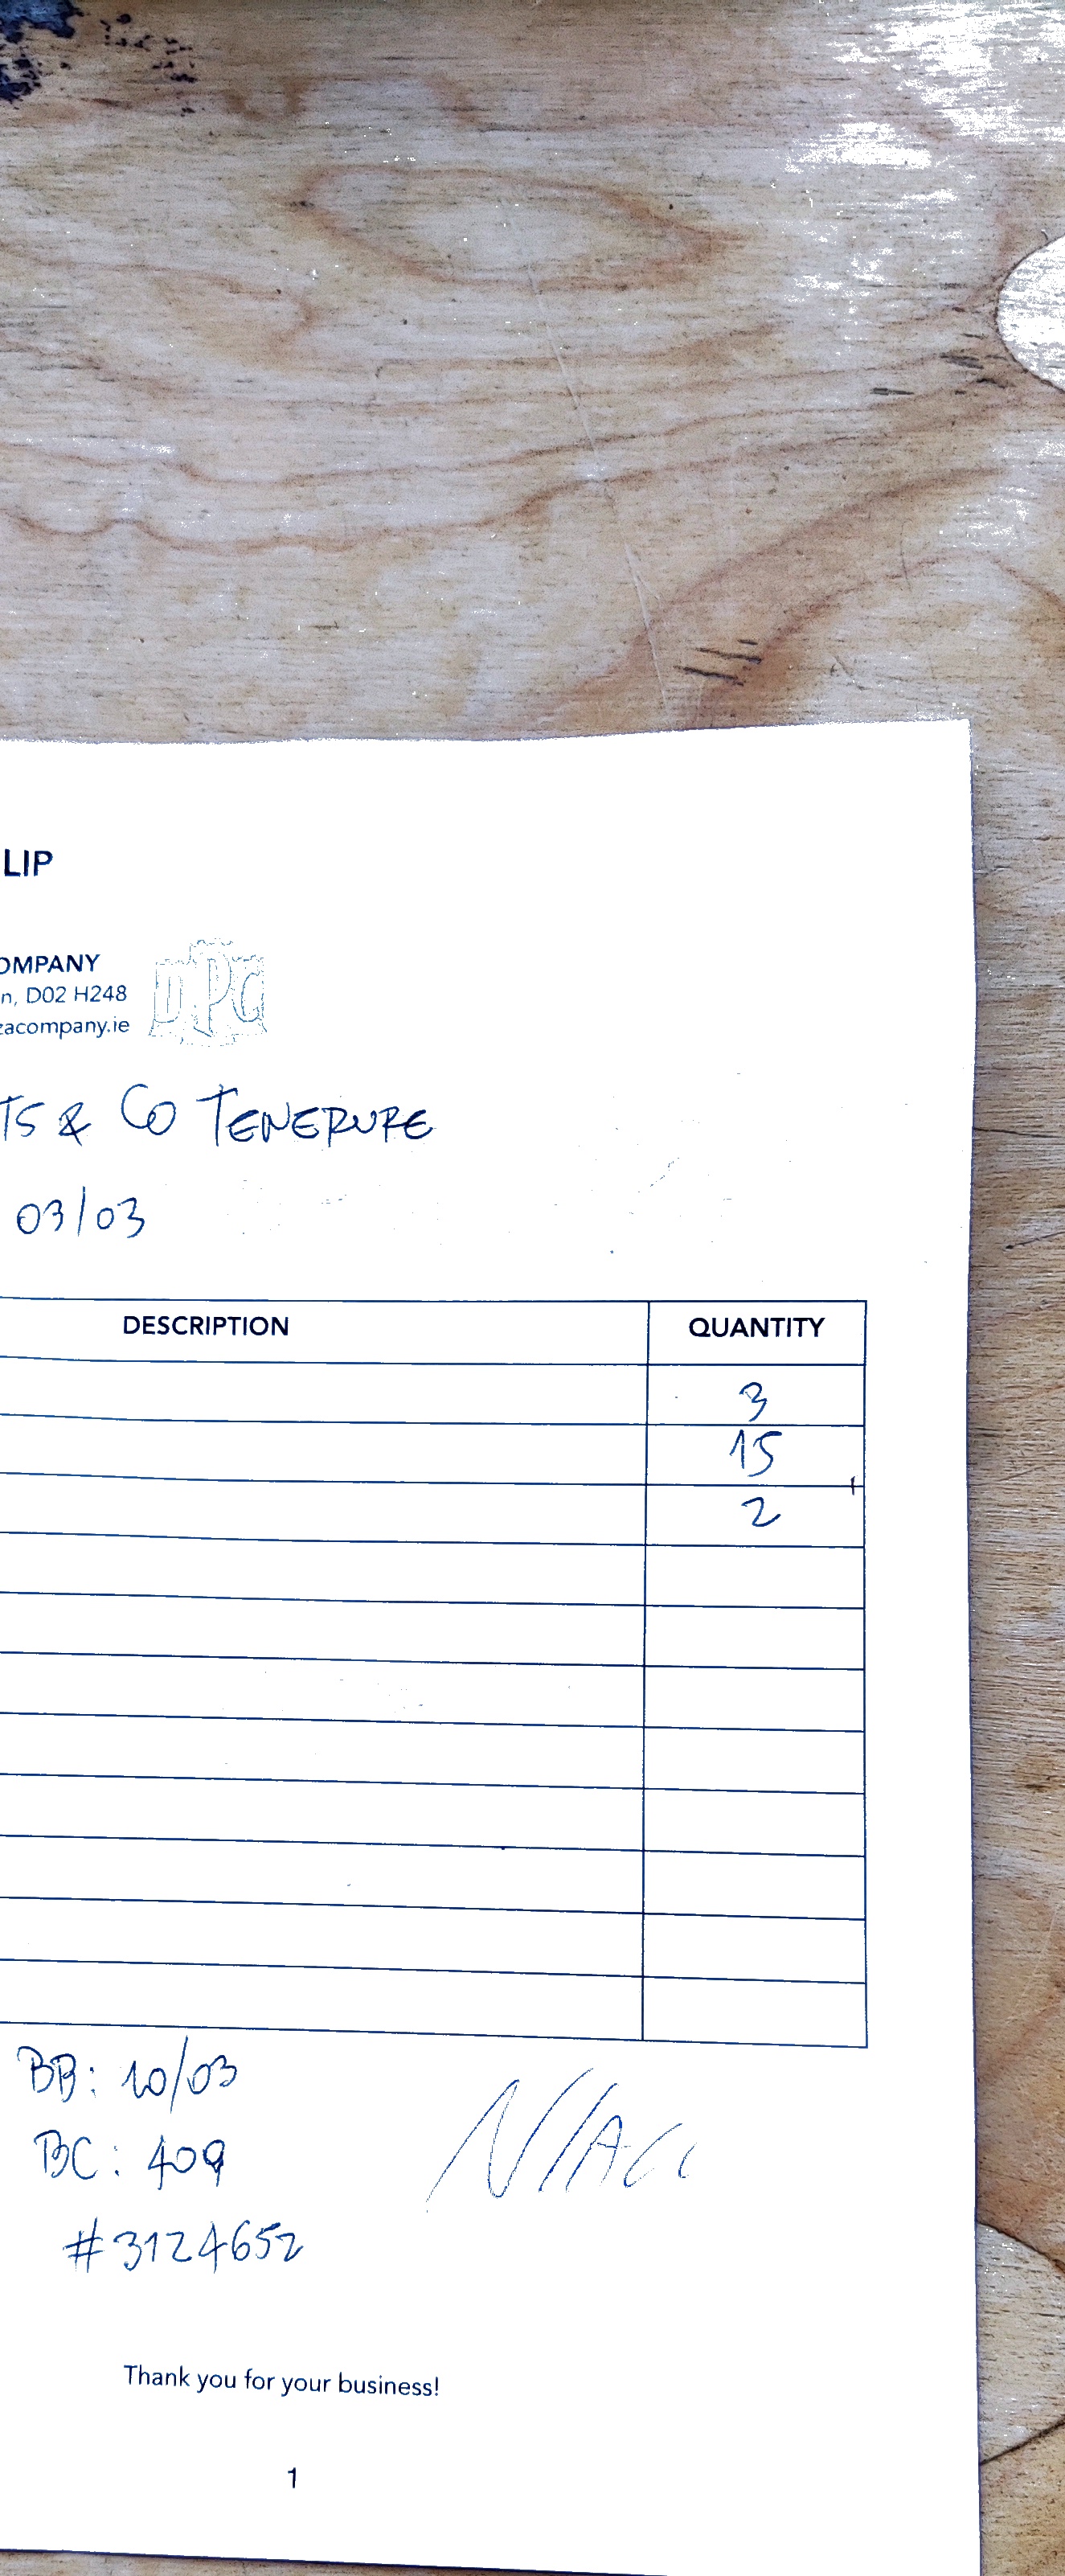 LIP
OMPANY
n, D02 H248
zacompany.ie
DPC
TS & CO TENERURE
03/03
DESCRIPTION QUANTITY
3
15
2
BB: 10/03
BC: 409
#3124652
Thank you for your business!
1